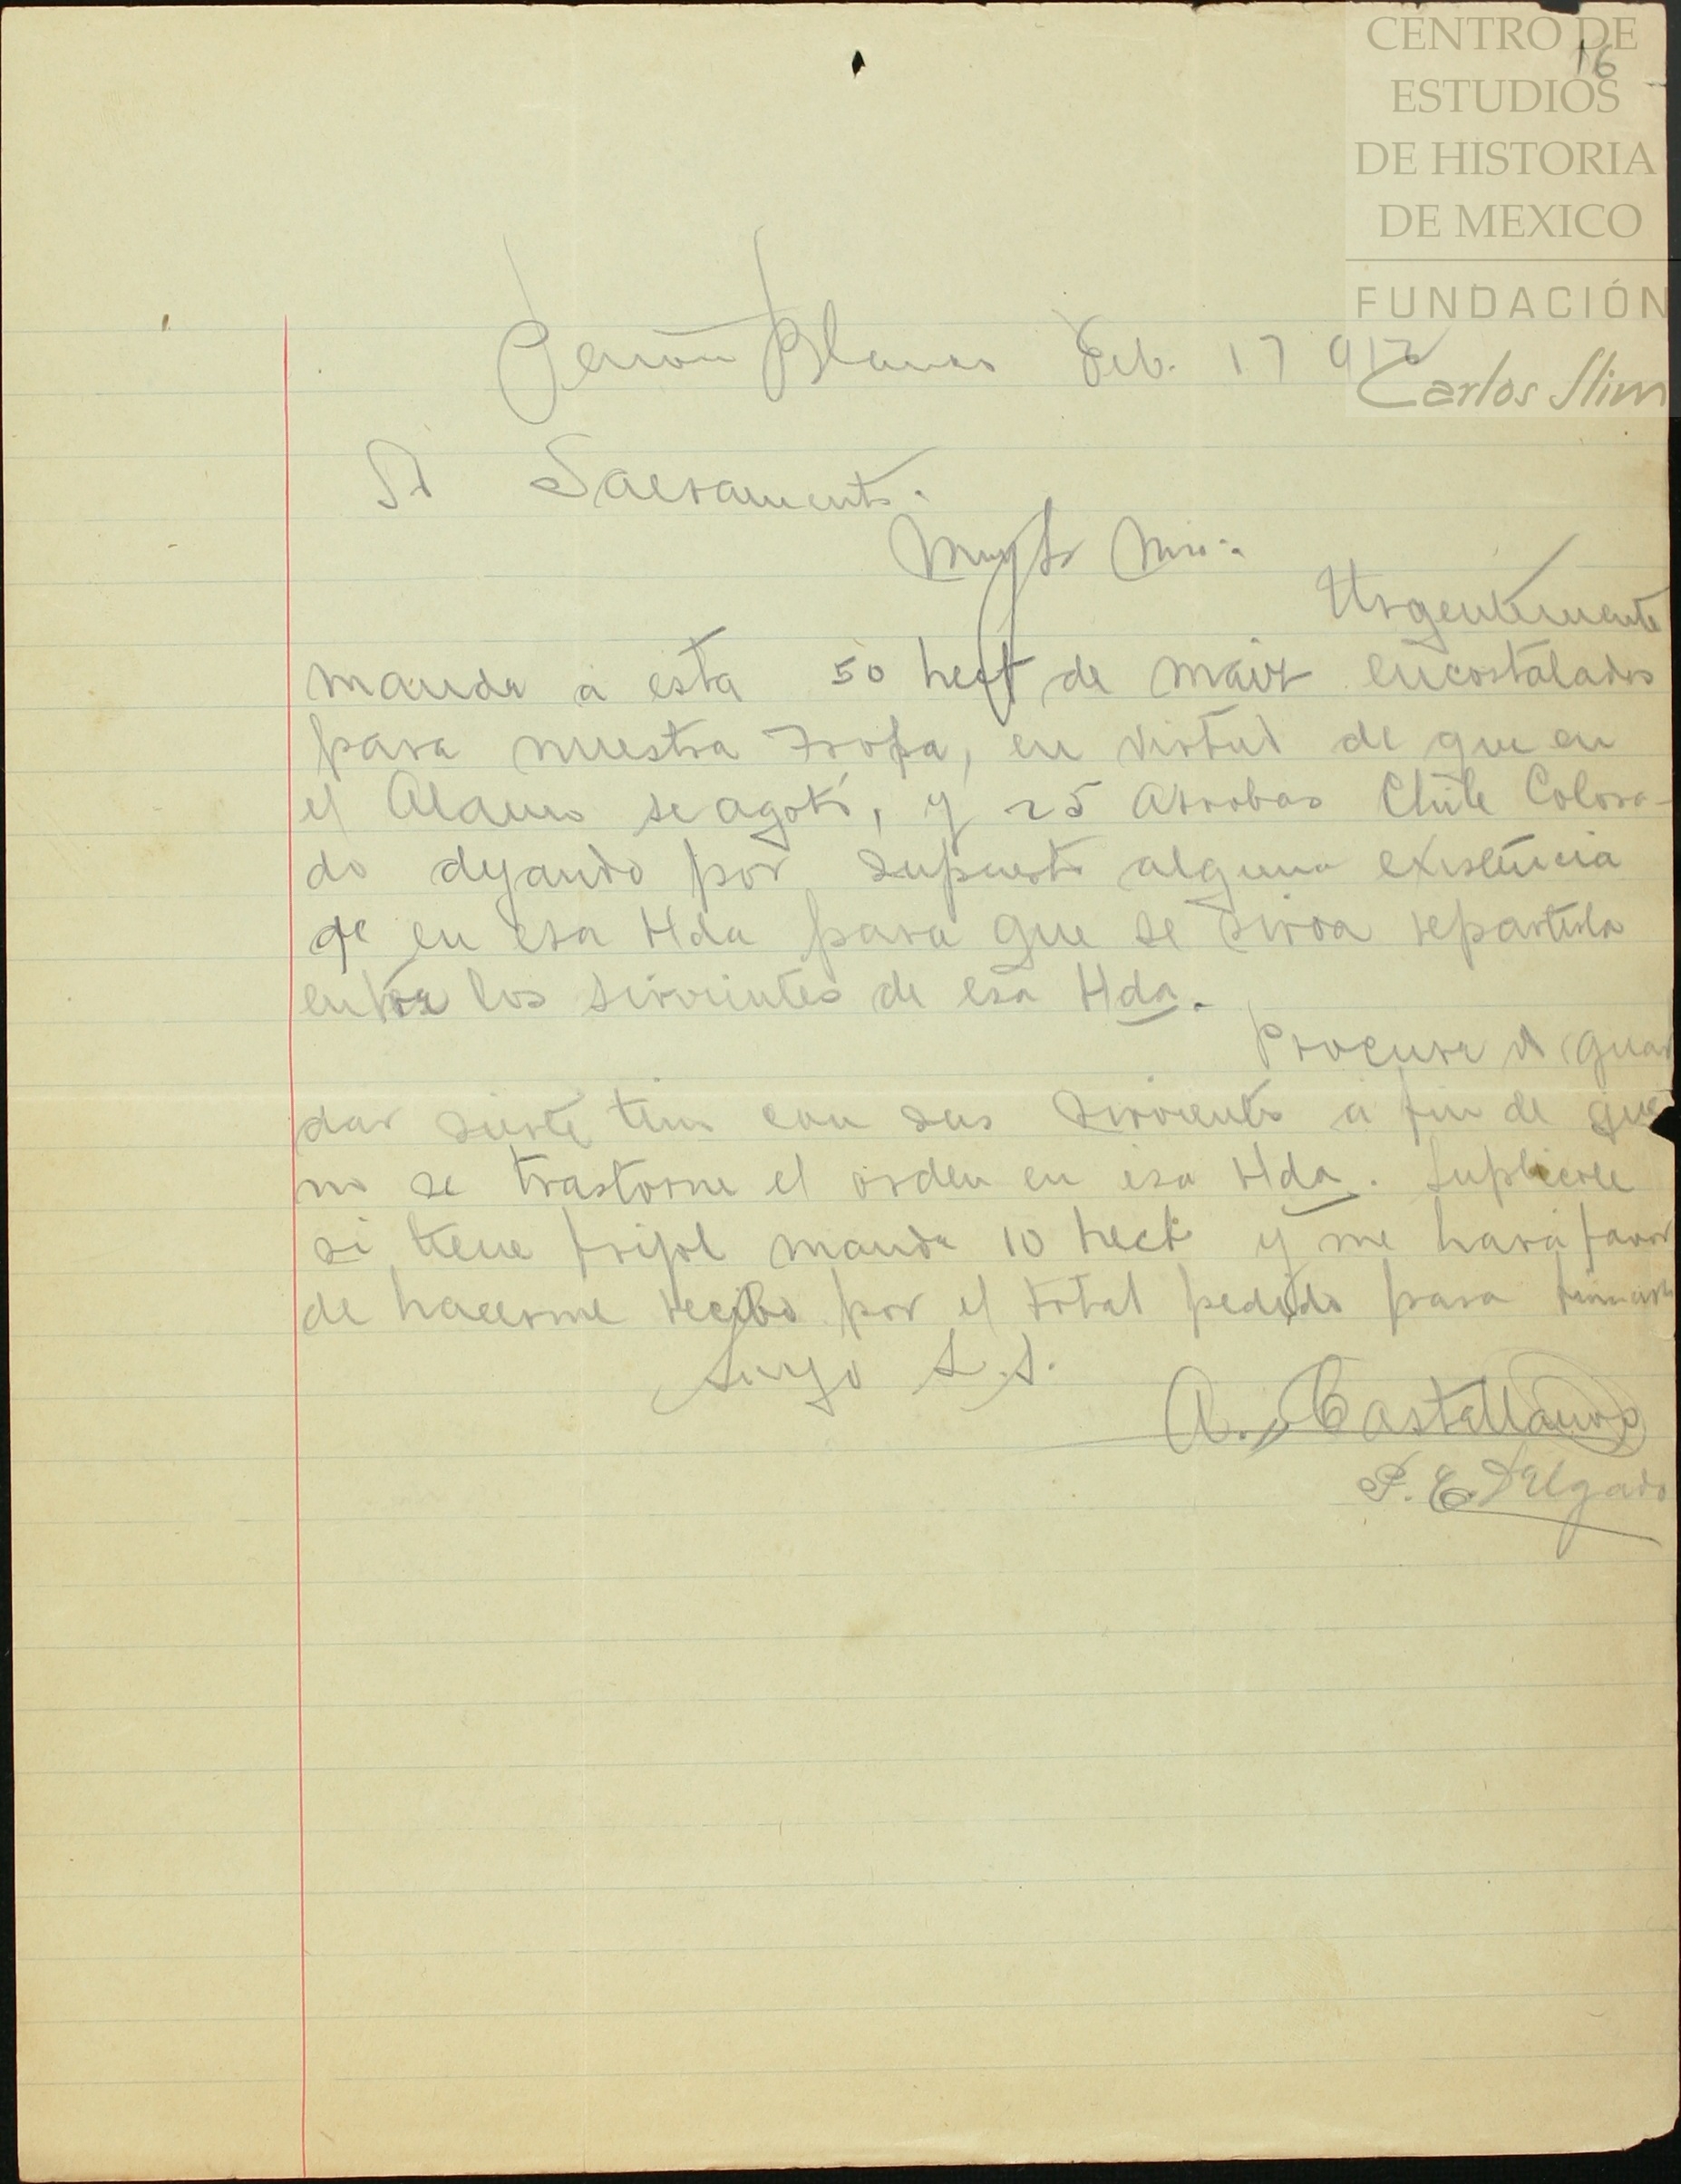 CENTRO DE
ESTUDIOS
DE HISTORIA
DE MEXICO
FUNDACIÓN
Carlos Slim
16
Peñon Blanco Feb. 17 912
Sr Sacramento.
Muy Sr Mio:
Urgentemente
mande a esta 50 hect de maiz encostalados
para nuestra Tropa, en virtud de que en
el Alamo se agotó, y 25 arrobas Chile Colora-
do dejando por supuesto alguna existencia
qe en esa Hda para que se sirva repartirla
entre los sirvientes de esa Hda.
Procure guar
dar con sus sirvientes a fin de que
no se trastorne el orden en esa Hda. Suplicole
si tiene frijol mande 10 hect y me hará favor
de hacerme recibo por el total pedido para
Suyo S.S.
A. Castellanos
P. E. Delgado